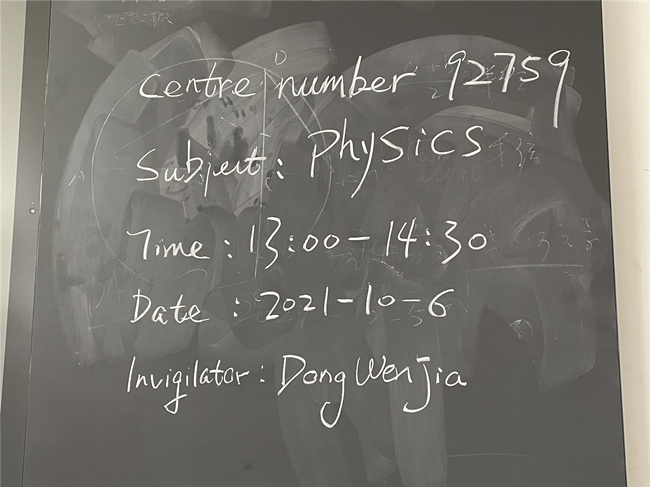 Centre number 92759
Subject: Physics
Time: 13:00-14:30
Date: 2021-10-6
Invigilator: Dong Wenjia